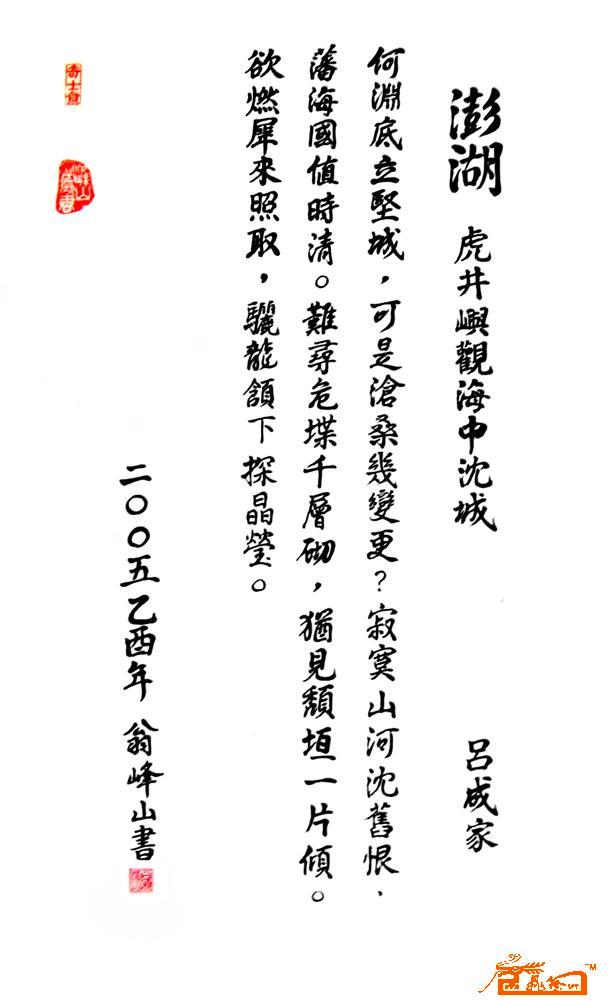 澎湖 虎井嶼觀海中沈城 呂成家
何淵底立堅城，可是滄桑幾變更？寂寞山河沈舊恨，
藩海國值時清。難尋危堞千層砌，猶見頹垣一片傾。
欲燃犀來照取，驪龍頷下探晶瑩。
二〇〇五乙酉年 翁峰山書